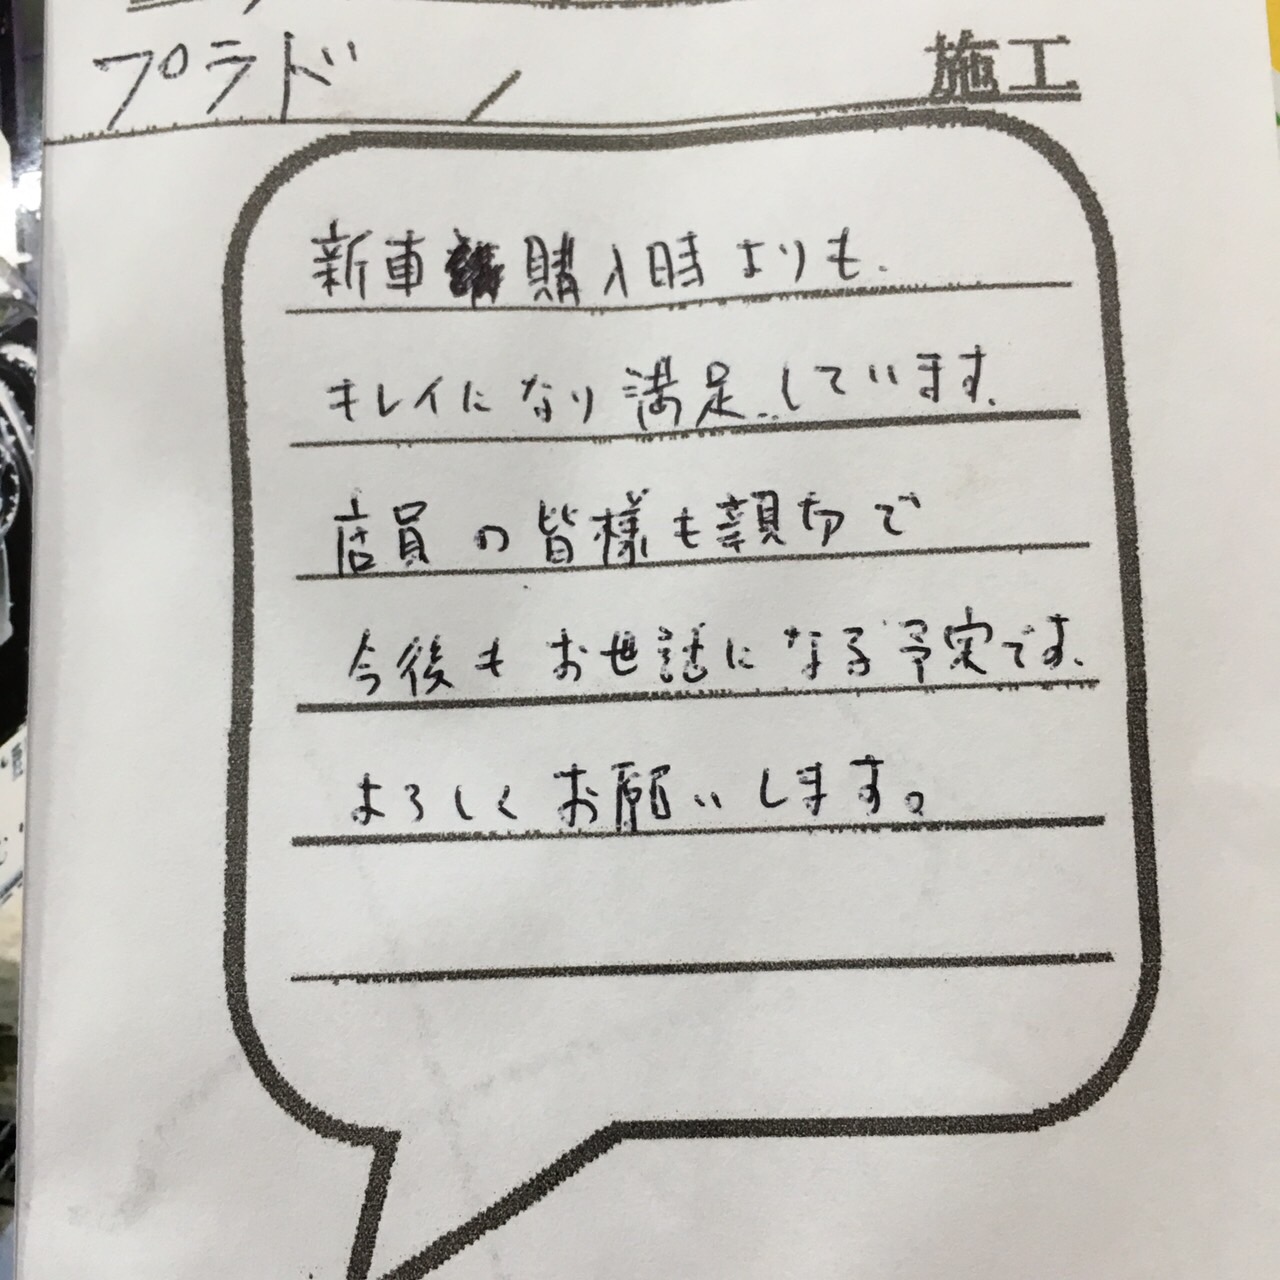 プラド / 施工
新車購入時よりも、
キレイになり満足しています。
店員の皆様も親切で
今後もお世話になる予定です。
よろしくお願いします。